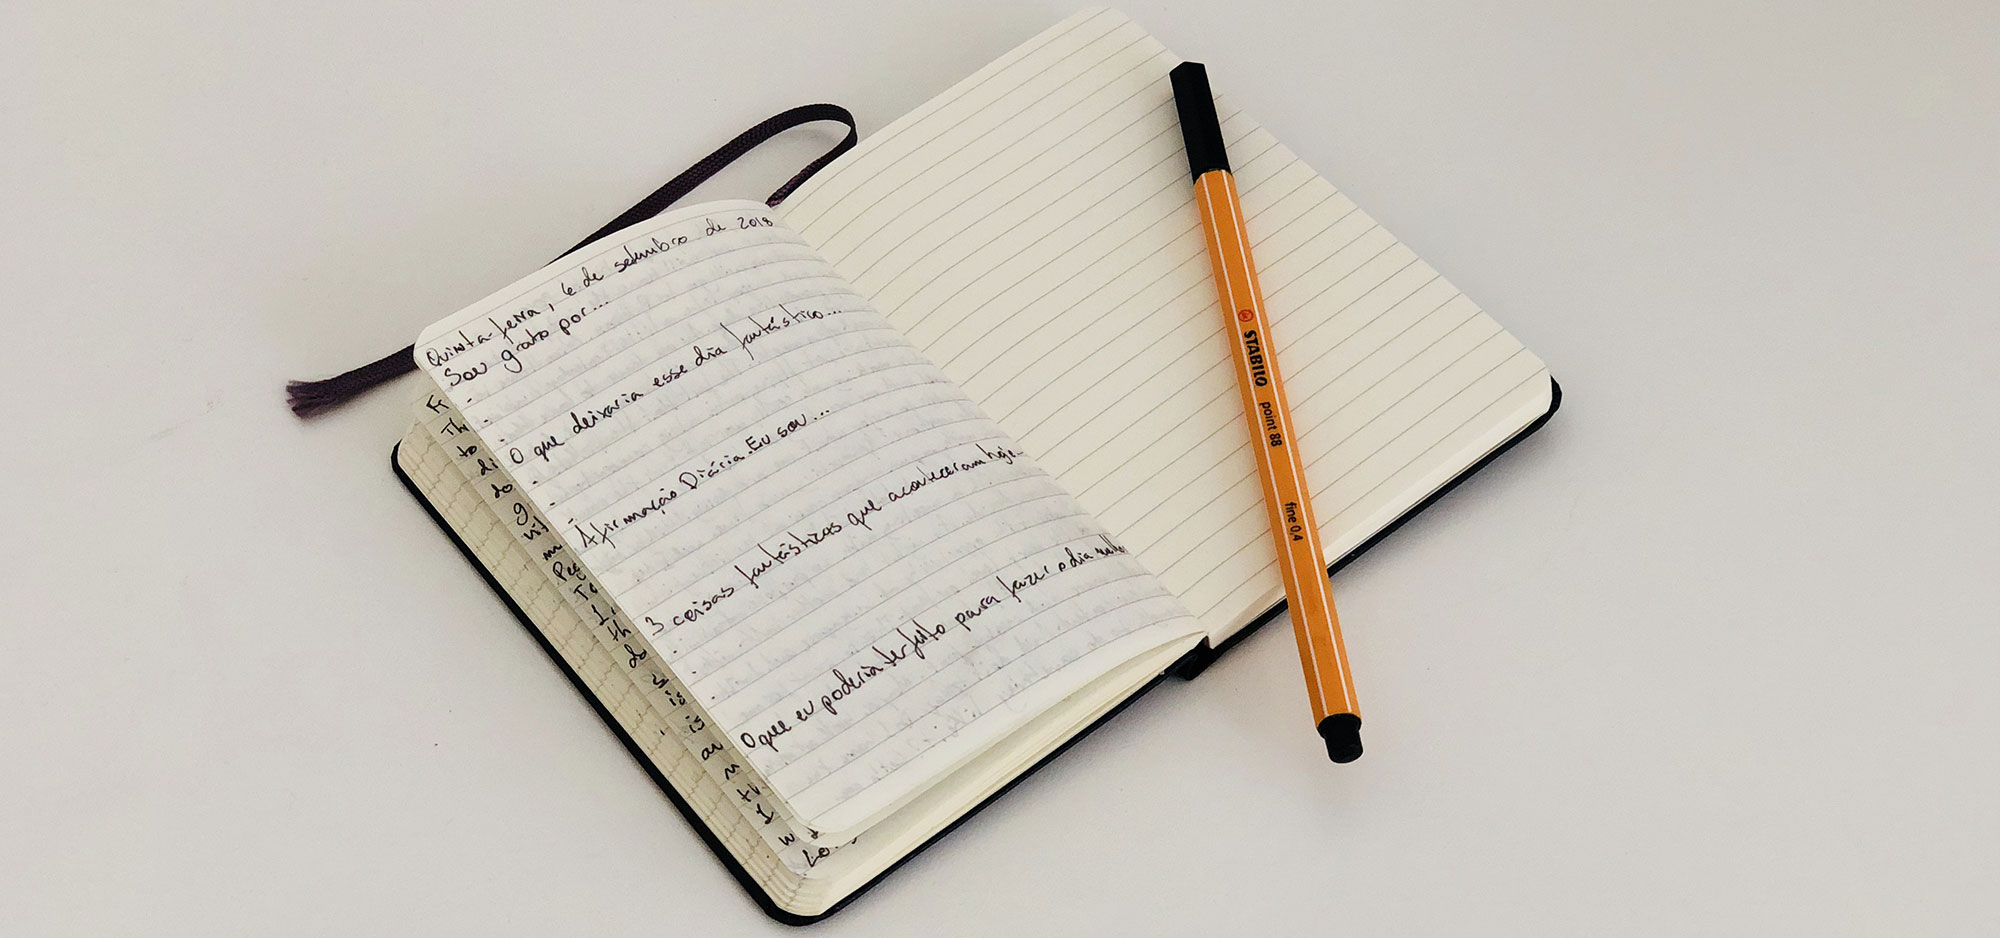 Quinta-feira, 6 de setembro de 2018
Sou grato por...
-
-
-
O que deixaria esse dia fantástico...
-
-
-
Afirmação Diária. Eu sou...
3 coisas fantásticas que aconteceram hoje...
-
-
-
O que eu poderia ter feito para fazer o dia melhor
Fr
Th
to
di
do
g
vit
m
Pe
To
1.
th
do
si
is
is
an
m
tu
I
w
Lo
STABILO point 88 fine 0,4